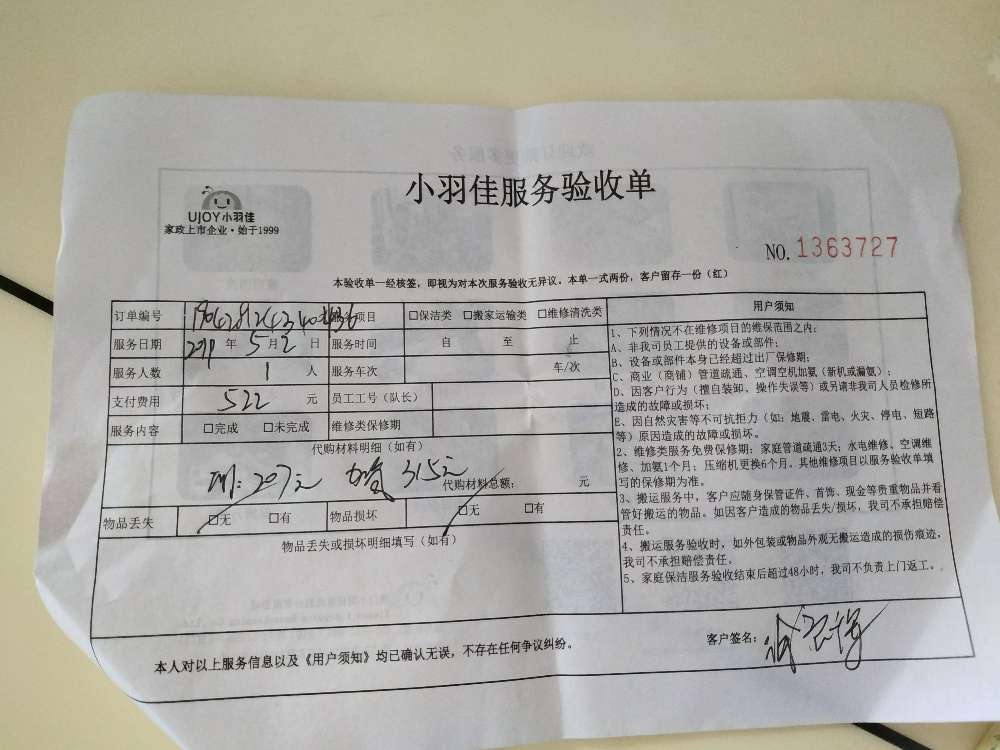 小羽佳服务验收单
UJOY小羽佳
家政上市企业·始于1999
NO. 1363727
本验收单一经核签，即视为对本次服务验收无异议。本单一式两份，客户留存一份（红）
订单编号 服务项目 □保洁类 □搬家运输类 □维修清洗类
服务日期 2019 年 5 月 2 日 服务时间 自 至 止
服务人数 1 人 服务车次 车/次
支付费用 522 元 员工工号（队长）
服务内容 □完成 □未完成 维修类保修期
代购材料明细（如有）
207元 315元
代购材料总额： 元
物品丢失 □无 □有 物品损坏 □无 □有
物品丢失或损坏明细填写（如有）
用户须知
1、下列情况不在维修项目的维保范围之内：
A、非我司员工提供的设备或部件；
B、设备或部件本身已经超过出厂保修期；
C、商业（商铺）管道疏通、空调空机加氨（新机或漏氨）；
D、因客户行为（擅自装卸、操作失误等）或另请非我司人员检修所
造成的故障或损坏；
E、因自然灾害等不可抗拒力（如：地震、雷电、火灾、停电、短路
等）原因造成的故障或损坏。
2、维修类服务免费保修期：家庭管道疏通3天；水电维修、空调维
修、加氨1个月；压缩机更换6个月。其他维修项目以服务验收单填
写的保修期为准。
3、搬运服务中，客户应随身保管证件、首饰、现金等贵重物品并看
管好搬运的物品。如因客户造成的物品丢失/损坏，我司不承担赔偿
责任。
4、搬运服务验收时，如外包装或物品外观无搬运造成的损伤痕迹，
我司不承担赔偿责任。
5、家庭保洁服务验收结束后超过48小时，我司不负责上门返工。
本人对以上服务信息以及《用户须知》均已确认无误，不存在任何争议纠纷。
客户签名：